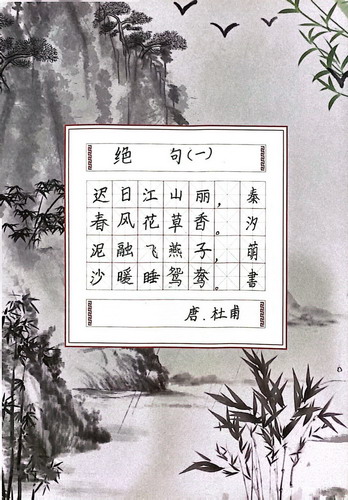 绝 句(一)
迟日江山丽,
春风花草香。
泥融飞燕子,
沙暖睡鸳鸯。
唐.杜甫
秦汐萌書